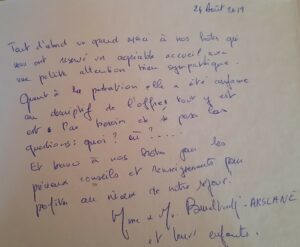 24 Août 2019
Tout d'abord un grand merci à nos hôtes qui
nous ont réservé un agréable accueil avec
une petite attention bien sympathique.
Quant à la prestation elle a été conforme
au descriptif de l'offre tout y est
est pas besoin de se poser les
questions: quoi? où?.....
Et bravo à nos hôtes pour les
précieux conseils et renseignements pour
profiter au mieux de notre séjour.
Mme & M. - ARSLANE
et leurs enfants.